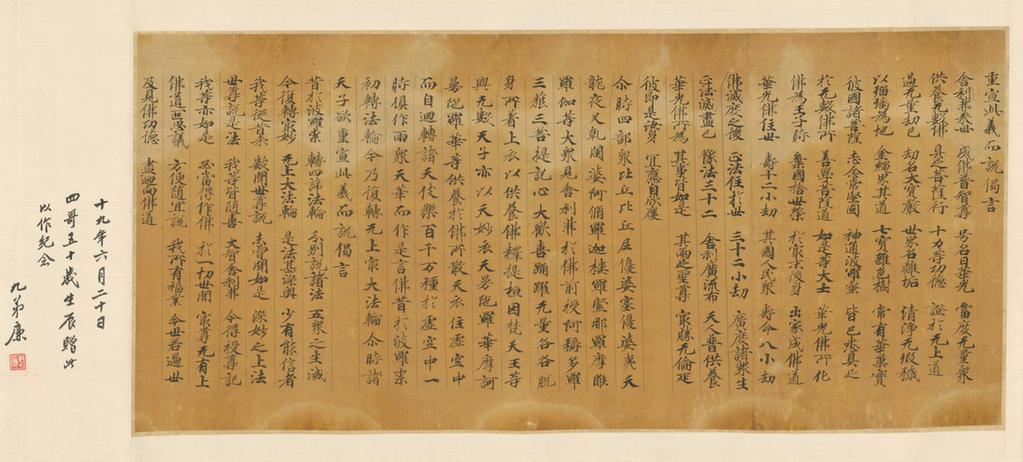 重宣此義而說偈言
舍利弗來世 成佛普智尊 号名曰華光 當度无量衆
供養无數佛 具足菩薩行 十力等功德 證於无上道
過无量劫已 劫名大寶嚴 世界名離垢 清淨无瑕穢
以瑠璃為地 金繩界其道 七寶雜色樹 常有華菓實
彼國諸菩薩 志念常堅固 神通波羅蜜 皆已悉具足
於无數佛所 善學菩薩道 如是等大士 華光佛所化
佛為王子時 棄國捨世榮 於最末後身 出家成佛道
華光佛住世 壽十二小劫 其國人民衆 壽命八小劫
佛滅度之後 正法住於世 三十二小劫 廣度諸衆生
正法滅盡已 像法三十二 舍利廣流布 天人普供養
華光佛所為 其事皆如是 其兩足聖尊 最勝无倫疋
彼即是汝身 宜應自欣慶
尒時四部衆比丘比丘尼優婆塞優婆夷天
龍夜叉乾闥婆阿脩羅迦樓羅緊那羅摩睺
羅伽等大衆見舍利弗於佛前授阿耨多羅
三藐三菩提記心大歡喜踊躍无量各各脫
身所著上衣以供養佛釋提桓因梵天王等
與无數天子亦以天妙衣天曼陁羅華摩訶
曼陁羅華等供養於佛所散天衣住虛空中
而自迴轉諸天伎樂百千万種於虛空中一
時俱作雨衆天華而作是言佛昔於波羅柰
初轉法輪今乃復轉无上最大法輪尒時諸
天子欲重宣此義而說偈言
昔於波羅柰 轉四諦法輪 分別說諸法 五衆之生滅
今復轉最妙 无上大法輪 是法甚深奧 少有能信者
我等從昔來 數聞世尊說 未曾聞如是 深妙之上法
世尊說是法 我等皆隨喜 大智舍利弗 今得授尊記
我等亦如是 必當得作佛 於一切世間 最尊无有上
佛道叵思議 方便隨宜說 我所有福業 今世若過世
及見佛功德 盡迴向佛道
十九年六月二十日
四哥五十歲生辰贈此
以作紀念
九弟康